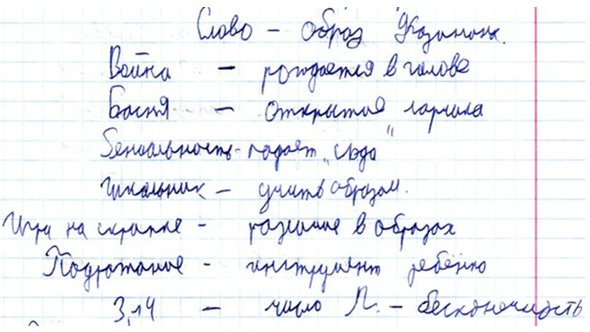 Слово – образ
Война – рождается в голове
Басня – открытие ларчика
Гениальность – падает „сюда"
Школьник – учить образам.
Игра на скрипке – разные в образах
Подражание – инструмент ребёнка
3,14 – число П. – бесконечность